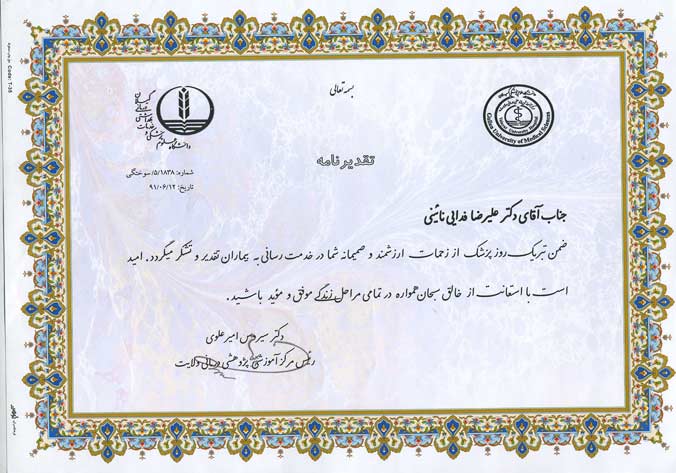 بسمه تعالی
Guilan University of Medical Sciences
تقدیرنامه
شماره: ۵/۱۸۳۸/سوختگی
تاریخ: ۹۱/۰۶/۱۲
جناب آقای دکتر علیرضا فدایی نائینی
ضمن تبریک روز پزشک از زحمات ارزشمند و صمیمانه شما در خدمت رسانی به بیماران تقدیر و تشکر میگردد. امید
است با استعانت از خالق سبحان همواره در تمامی مراحل زندگی موفق و مؤید باشید.
دکتر سیروس امیر علوی
رئیس مرکز آموزشی پژوهشی درمانی ولایت
Code: T-35